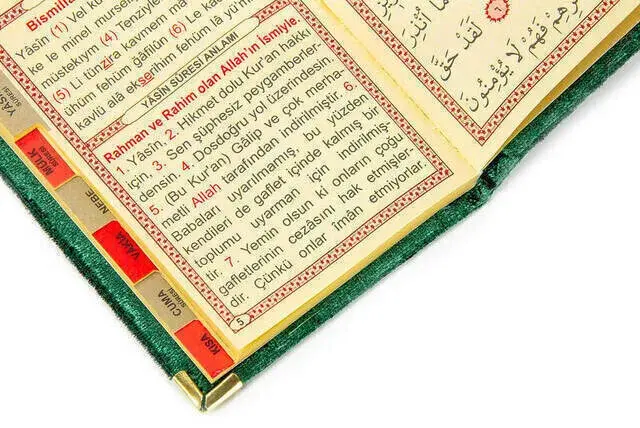 Bismill
Yâsîn (1) Vel ku
ke le minel mursel
müstekıym (4) Tenzîyle
(5) Li tünzira kavmem mâ
ühüm fehüm ğâfilün (6) Le ka
kavlü alâ ekserihim fehüm lâ yü'm
YÂSÎN SÛRESİ ANLAMI
Rahman ve Rahim olan Allah'ın İsmiyle.
1. Yâsîn, 2. Hikmet dolu Kur'an hakkı
için, 3. Sen şüphesiz peygamberler-
densin. 4. Dosdoğru yol üzerindesin.
5. (Bu Kur'an) Gâlip ve çok merha-
metli Allah tarafından indirilmiştir. 6.
Babaları uyarılmamış, bu yüzden
kendileri de gaflet içinde kalmış bir
toplumu uyarman için indirilmiş-
tir. 7. Yemin olsun ki onların çoğu
gafletlerinin cezâsını hak etmişler-
dir. Çünkü onlar îmân etmiyorlar.
5
لَقَدْ حَقَّ
فَهُمْ لَا يُؤْمِنُونَ
YÂSÎN
SÛRESİ
MÜLK
SÛRESİ
NEBE
VÂKIA
CUMA
SÛRESİ
KISA